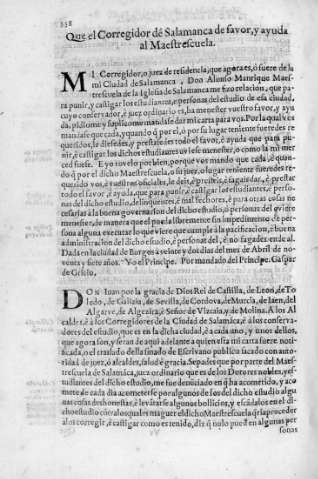 Que el Corregidor dè Salamanca de fauor, y ayuda
al Maestrescuela.
MI Corregidor, o juez de residencia, que agora es, ò fuere de la
mi Ciudad de Salamanca, Don Alonso Manrique Maes-
trescuela de la Iglesia de Salamanca me fizo relacion, que pa
ra punir, y castigar los estudiantes, e personas del estudio de essa ciudad,
cuyo conseruador, è juez ordinario es, ha menester vuestro fauor, y ayu
da, pidiome y suplicome mandasse dar mi carta para vos. Por la qual vos
mando que cada, y quando q por el, ò por su lugar teniente fueredes re
queridos, le dedes, y presteis todo el fauor, è ayuda que para pu-
nir, è castigar los dichos estudiantes vos
ced fuesse. E yo vos mando que cada, è quan-
do q por el dicho Maestrescuela, o su juez, o lugar teniente fueredes re-
querido vos, è vuestros oficiales, le deis, è presteis, è fagais dar, è prestar
todo el fauor, è ayuda, que para punir, è castigar los estudiantes, perso-
nas del dicho estudio, delinquentes, è malfechores, è para otras cosas ne
cessarias a la buena gouernacion del dicho estudio, ò personas del
menester, de manera que el pueda libremente sin impedimento de perso
na alguna executar lo que viere que cumple a la pacificacion, è buena
administracion del dicho estudio, è personas del, è no fagades ende al.
Dada en la ciudad de Burgos a veynte y dos dias del mes de Abril de no-
uenta y siete años. Yo el Principe. Por mandado del Principe. Gaspar
de Grisio.
DON Iuan por la gracia de Dios Rei de Castilla, de Leon, de To
ledo, de Galizia, de Seuilla, de Cordoua, de Murcia, de Iaen, del
Algarue, de Algezira, è Señor de Vizcaia, y de Molina. A los Al
caldes, è a los Corregidores de la Ciudad de Salamãca, è a los conserua
dores del estudio, que es en la dicha ciudad, è a cada uno, y vnos dellos,
que agora son, y seran de aqui adelante a quien esta mi carta fuere noti
ficada, o el traslado della sinado de Escriuano publico sacado con auto-
ridad de juez, ò alcalde, salud è gracia. Sepades que por parte del Maes-
trescuela de Salamanca, juez ordinario que es de los Dotores nobles, y es-
tudiantes del dicho estudio, me fue denunciado en q ha acontecido, y aco
mete de cada dia acometerse por algunos de los del dicho estudio algu
nas cosas deshonestas, è leuantarse algunos bollicios, y escãdalos en el di-
cho estudio con los quales maguer el dicho Maestrescuela qria proceder
a los corregir, è castigar como es tenido, diz q no lo puede en algunas per
sonas